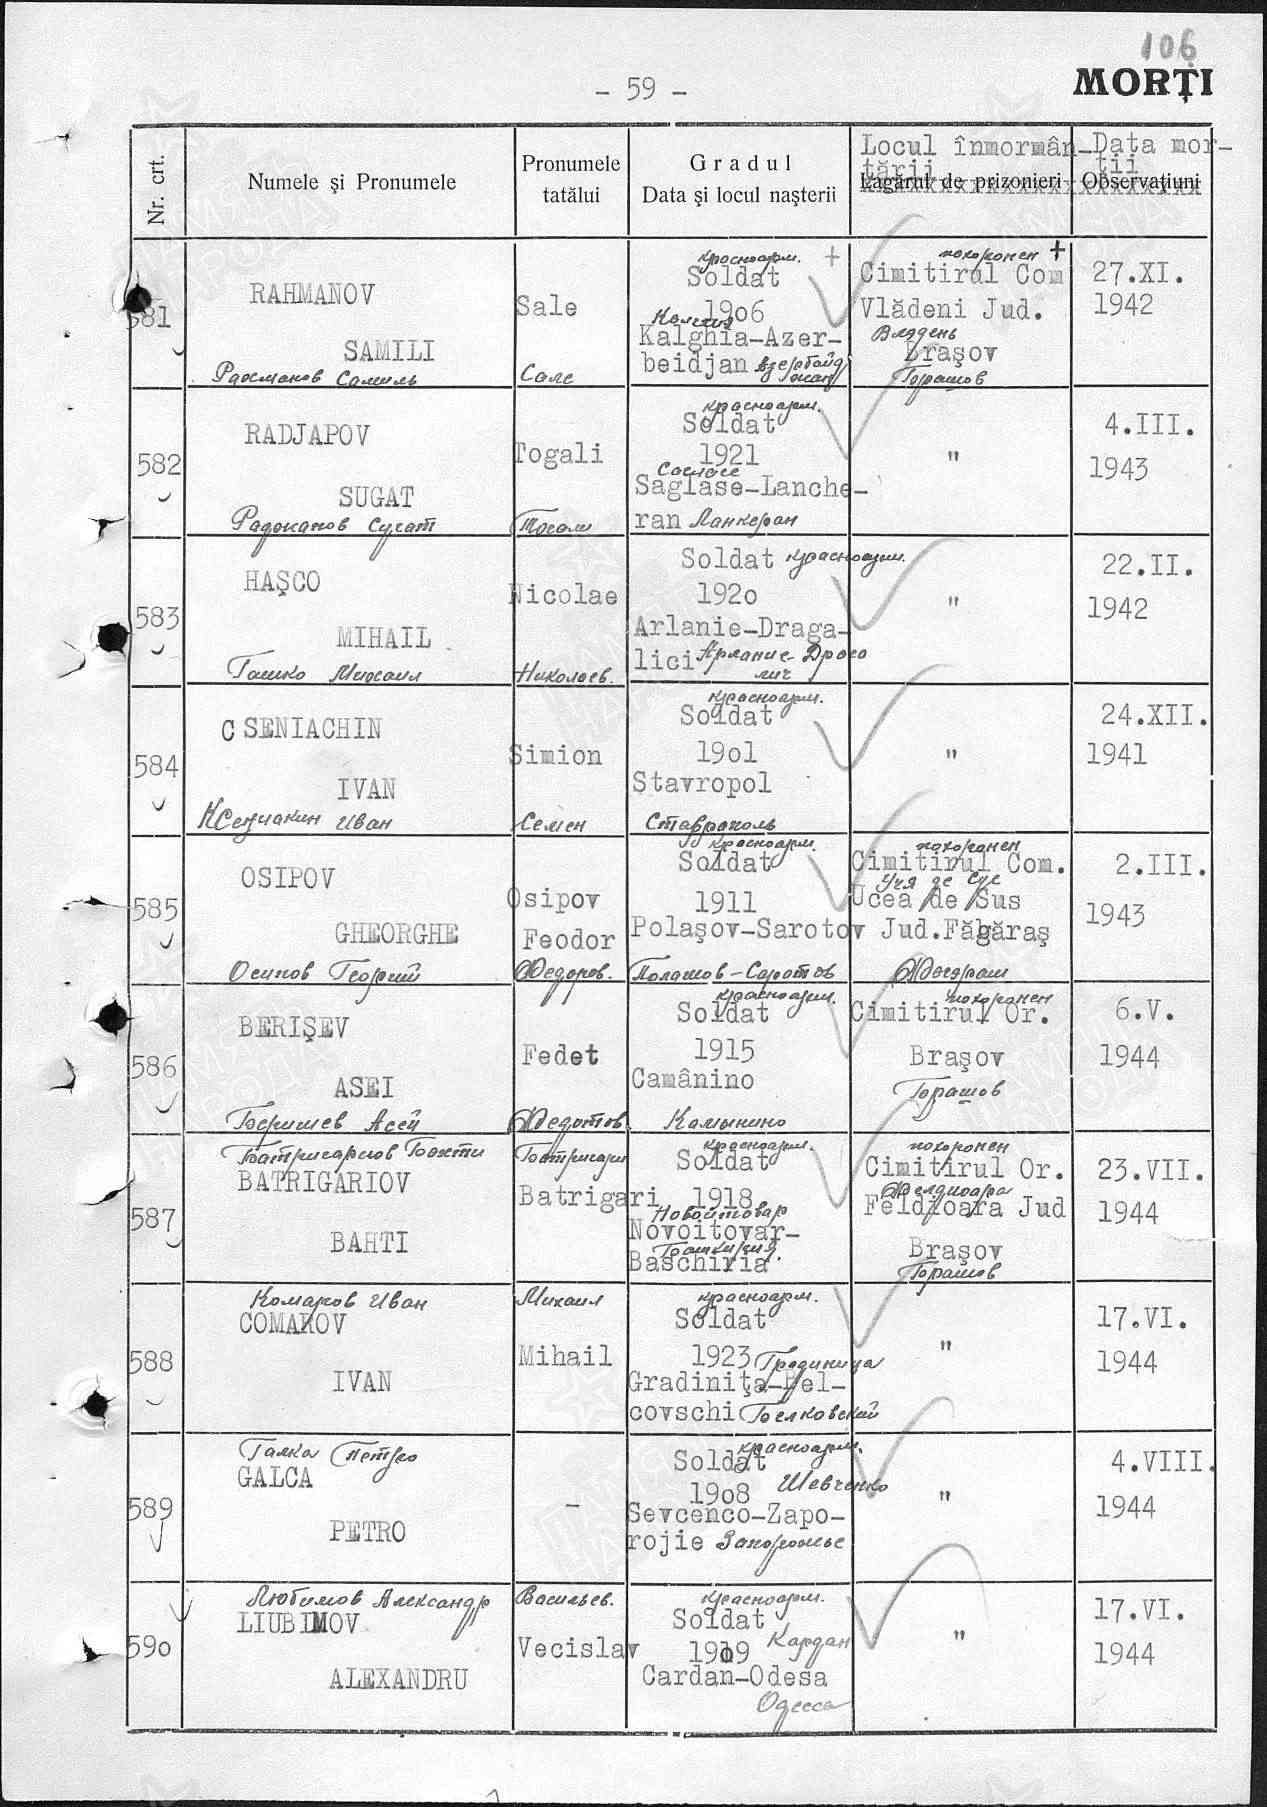 106
- 59 -
MORȚI
Nr. crt.
Numele şi Pronumele
Pronumele
tatălui
Gradul
Data şi locul naşterii
Locul înmormân-
tării
Lagărul de prizonieri
Data mor-
ţii
Observaţiuni
581
RAHMANOV
SAMILI
Рахманов Самиль
Sale
Сале
красноарм.
Soldat
1906
Kalghia-Azer-
beidjan
похоронен
Cimitirul Com
Vlădeni Jud.
Владень
Braşov
Брашов
27.XI.
1942
582
RADJAPOV
SUGAT
Раджапов Сугат
Togali
Тогали
красноарм.
Soldat
1921
Сагласе
Saglase-Lanche-
ran Ланкеран
"
4.III.
1943
583
HAŞCO
MIHAIL
Гашко Михаил
Nicolae
Николаев.
Soldat красноарм.
1920
Arlanie-Draga-
lici Арлание-Драга
лич
"
22.II.
1942
584
CSENIACHIN
IVAN
Ксенчакин Иван
Simion
Семен
красноарм.
Soldat
1901
Stavropol
Ставрополь
"
24.XII.
1941
585
OSIPOV
GHEORGHE
Осипов Георгий
Osipov
Feodor
Федоров.
красноарм.
Soldat
1911
Polaşov-Sarotov
Полашов-Саротов
похоронен
Cimitirul Com.
Учя де Сус
Ucea de Sus
Jud.Făgăraş
Фэгэраш
2.III.
1943
586
BERIŞEV
ASEI
Беришев Асей
Fedet
Федотов
красноарм.
Soldat
1915
Camânino
Камынино
похоронен
Cimitirul Or.
Braşov
Брашов
6.V.
1944
587
Батригариов Бахти
BATRIGARIOV
BAHTI
Батригари
Batrigari
красноарм.
Soldat
1918
Новоитовар
Novoitovar-
Башкирия
Baschiria
похоронен
Cimitirul Or.
Фелдиоара
Feldioara Jud
Braşov
Брашов
23.VII.
1944
588
Комаров Иван
COMAROV
IVAN
Михаил
Mihail
красноарм.
Soldat
1923 Градиница
Gradiniţa-Bel-
covschi Белковский
"
17.VI.
1944
589
Галка Петро
GALCA
PETRO
-
красноарм.
Soldat
1908 Шевченко
Sevcenco-Zapo-
rojie Запорожье
"
4.VIII.
1944
590
Любимов Александр
LIUBIMOV
ALEXANDRU
Васильев.
Vecislav
красноарм.
Soldat
1919 Кардан
Cardan-Odesa
Одесса
"
17.VI.
1944